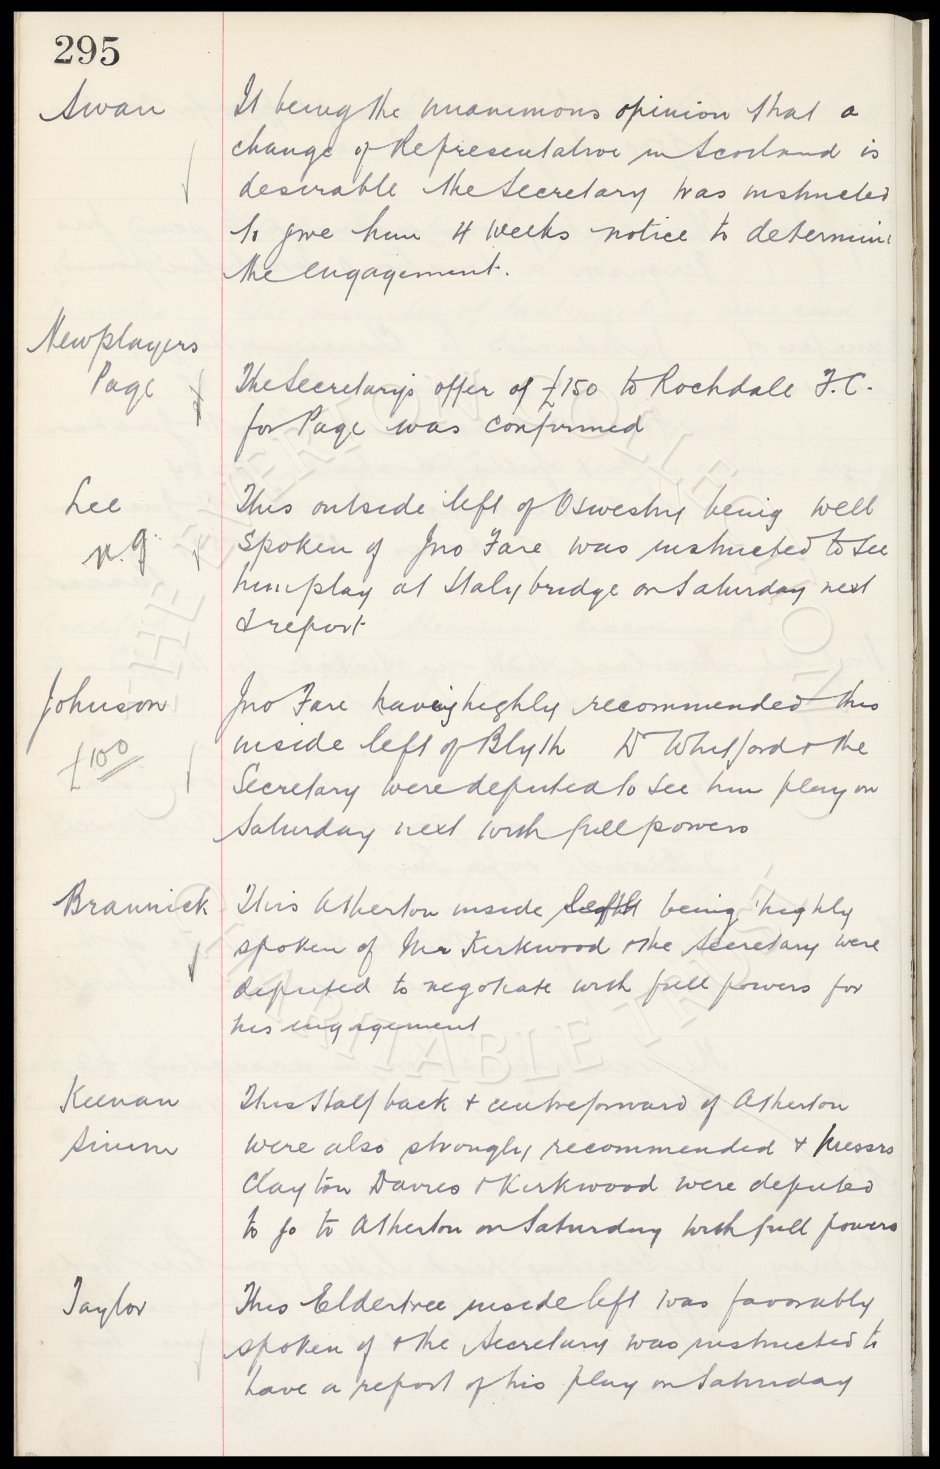 295
Swan
It being the unanimous opinion that a
change of Representative in Scotland is
desirable the Secretary was instructed
to give him 4 weeks notice to determine
the engagement.
New players
Page
The Secretary's offer of £150 to Rochdale F.C.
for Page was confirmed
Lee
n.g.
This outside left of Oswestry being well
spoken of Jno Fare was instructed to see
him play at Stalybridge on Saturday next
& report
Johnson
£100
Jno Fare having highly recommended this
inside left of Blyth Dr Whitford & the
Secretary were deputed to see him play on
Saturday next with full powers
Brannick
This Atherton inside left being highly
spoken of Mr Kirkwood & the Secretary were
deputed to negotiate with full powers for
his engagement
Keenan
This Half back & centreforward of Atherton
were also strongly recommended & Messrs
Clayton Davies & Kirkwood were deputed
to go to Atherton on Saturday with full powers
Taylor
This Eldertree inside left was favorably
spoken of & the Secretary was instructed to
have a report of his play on Saturday
THE EVERTON COLLECTION
CHARITABLE TRUST